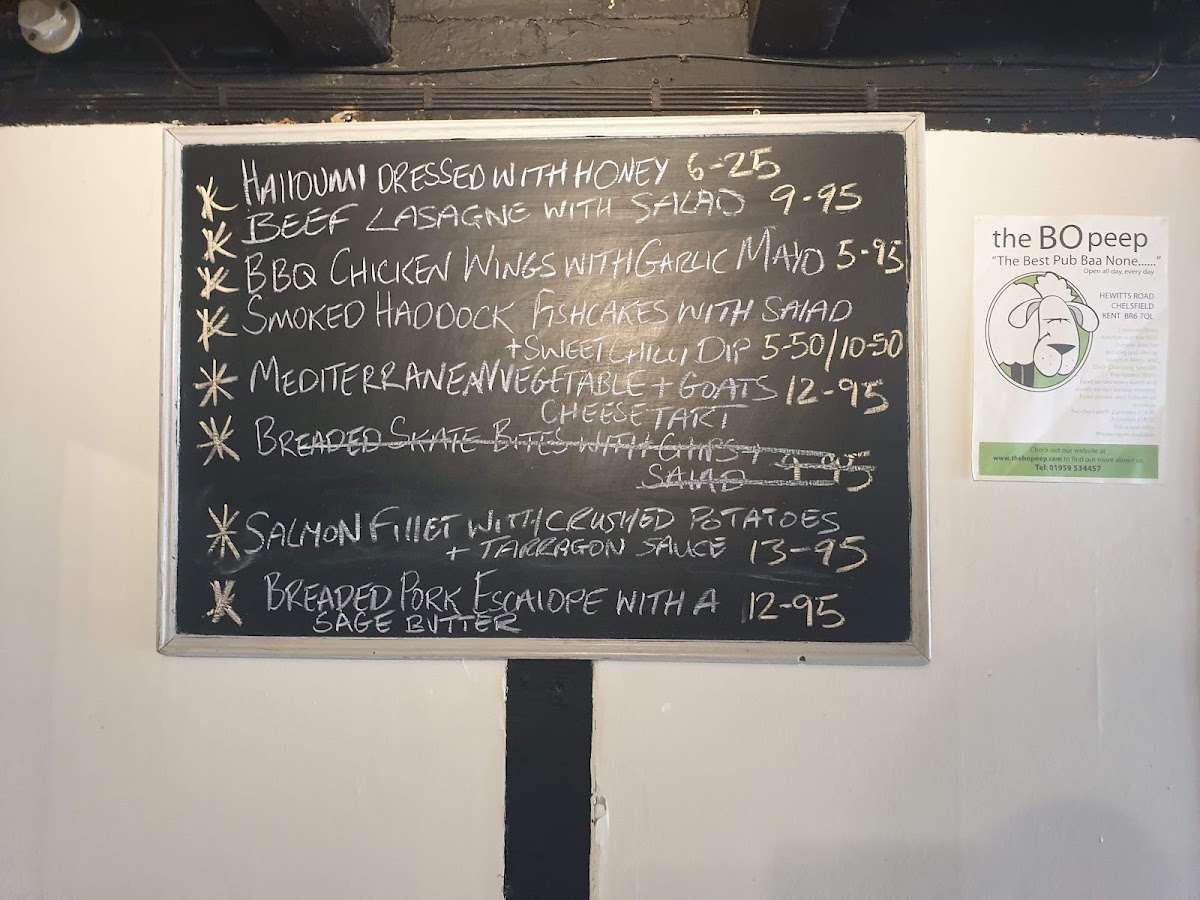 HAllOUMI DRESSED WITH HONEY 6-25
BEEF LASAGNE WITH SALAD 9-95
BBQ CHICKEN WINGS WITH GARLIC MAYO 5-95
SMOKED HADDOCK FISHCAKES WITH SAlAD
+ SWEET CHILLI DIP 5-50/10-50
MEDITERRANEAN VEGETABLE + GOATS 12-95
CHEESE TART
BREADED SKATE BITES WITH CHIPS +
SAlAD
SALMON FillET WITH CRUSHED POTATOES
+ TARRAGON SAUCE 13-95
BREADED PORK ESCAlOPE WITH A 12-95
SAGE BUTTER
the BO peep
"The Best Pub Baa None......"
Open all day, every day
HEWITTS ROAD
CHELSFIELD
KENT BR6 7QL
Check out our website at
www.thebopeep.com to find out more about us
Tel: 01959 534457